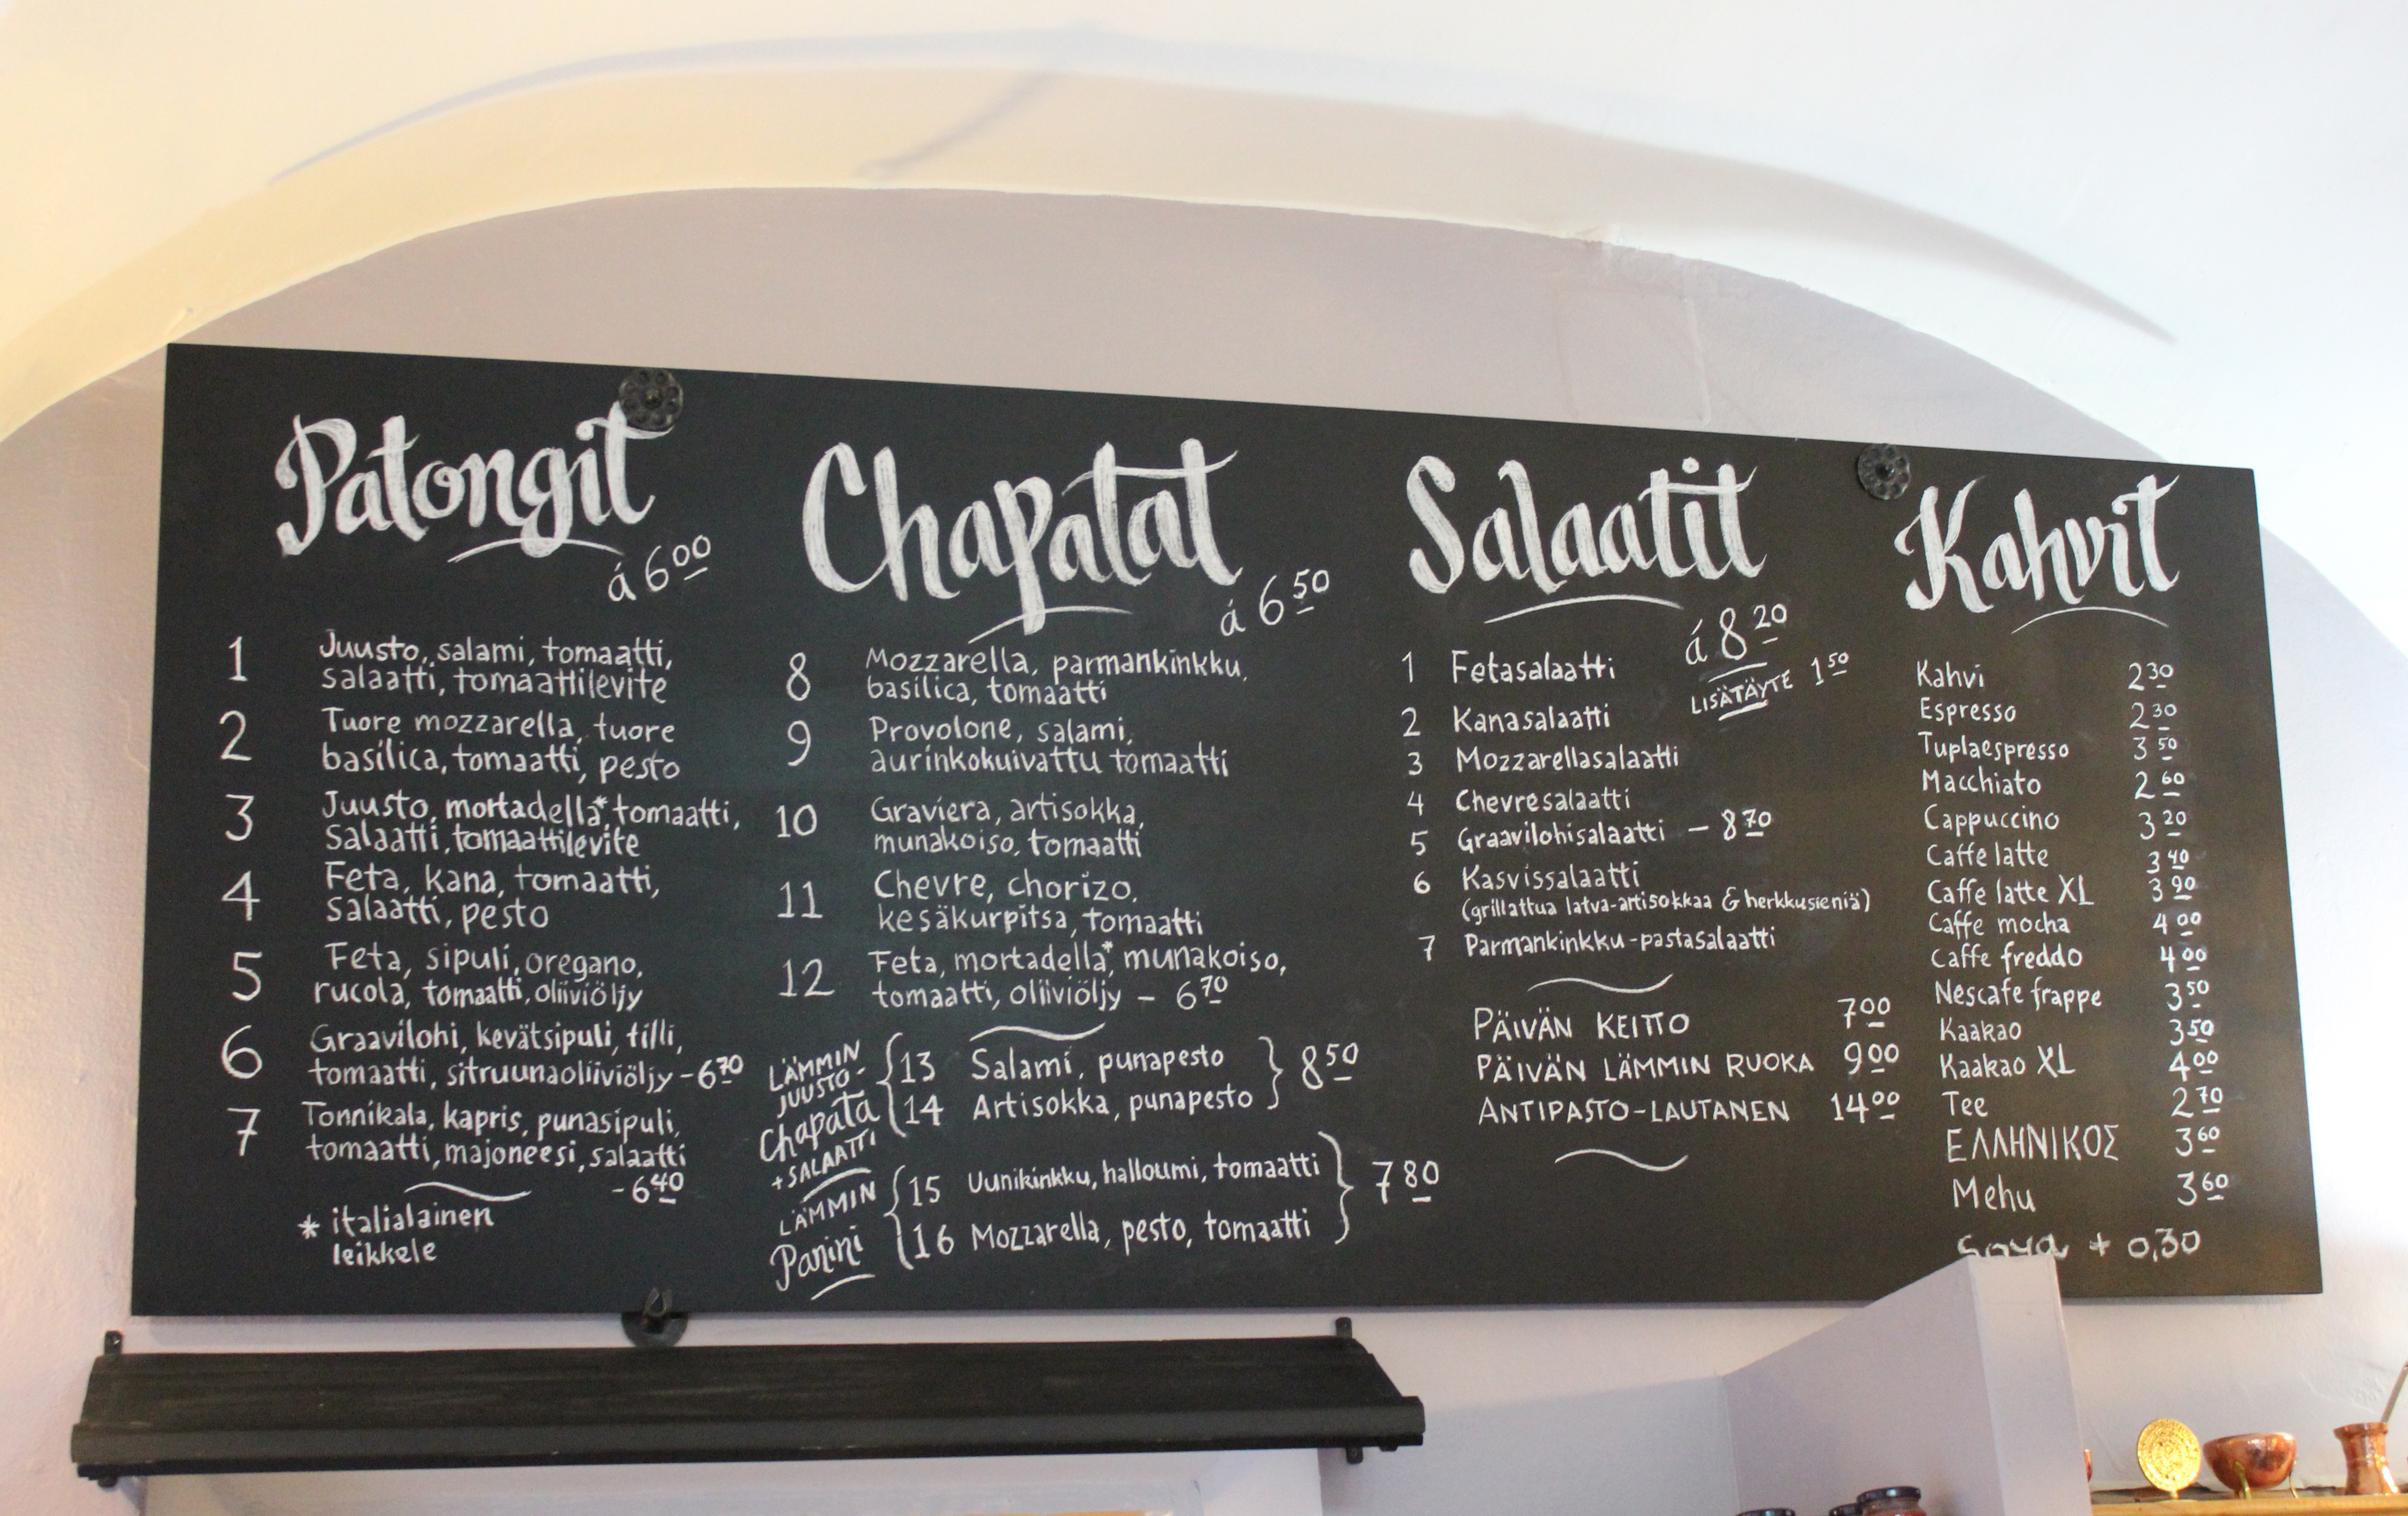 Patongit
á 6 00
1 Juusto, salami, tomaatti,
salaatti, tomaattilevite
2 Tuore mozzarella, tuore
basilica, tomaatti, pesto
3 Juusto, mortadella*, tomaatti,
salaatti, tomaattilevite
4 Feta, kana, tomaatti,
salaatti, pesto
5 Feta, sipuli, oregano,
rucola, tomaatti, oliiviöljy
6 Graavilohi, kevätsipuli, tilli,
tomaatti, sitruunaoliiviöljy - 6 70
7 Tonnikala, kapris, punasipuli,
tomaatti, majoneesi, salaatti
- 6 40
* italialainen
leikkele
Chapatat
á 6 50
8 Mozzarella, parmankinkku,
basilica, tomaatti
9 Provolone, salami,
aurinkokuivattu tomaatti
10 Graviera, artisokka,
munakoiso, tomaatti
11 Chevre, chorizo,
kesäkurpitsa, tomaatti
12 Feta, mortadella*, munakoiso,
tomaatti, oliiviöljy - 6 70
LÄMMIN
JUUSTO-
Chapata
+ SALAATTI
13 Salami, punapesto
14 Artisokka, punapesto
8 50
LÄMMIN
Panini
15 Uunikinkku, halloumi, tomaatti
16 Mozzarella, pesto, tomaatti
7 80
Salaatit
á 8 20
LISÄTÄYTE 1 50
1 Fetasalaatti
2 Kanasalaatti
3 Mozzarellasalaatti
4 Chevresalaatti
5 Graavilohisalaatti - 8 70
6 Kasvissalaatti
(grillattua latva-artisokkaa & herkkusieniä)
7 Parmankinkku-pastasalaatti
PÄIVÄN KEITTO 7 00
PÄIVÄN LÄMMIN RUOKA 9 00
ANTIPASTO-LAUTANEN 14 00
Kahvit
Kahvi 2 30
Espresso 2 30
Tuplaespresso 3 50
Macchiato 2 60
Cappuccino 3 20
Caffe latte 3 40
Caffe latte XL 3 90
Caffe mocha 4 00
Caffe freddo 4 00
Nescafe frappe 3 50
Kaakao 3 50
Kaakao XL 4 00
Tee 2 70
ΕΛΛΗΝΙΚΟΣ 3 60
Mehu 3 60
Soya + 0,30